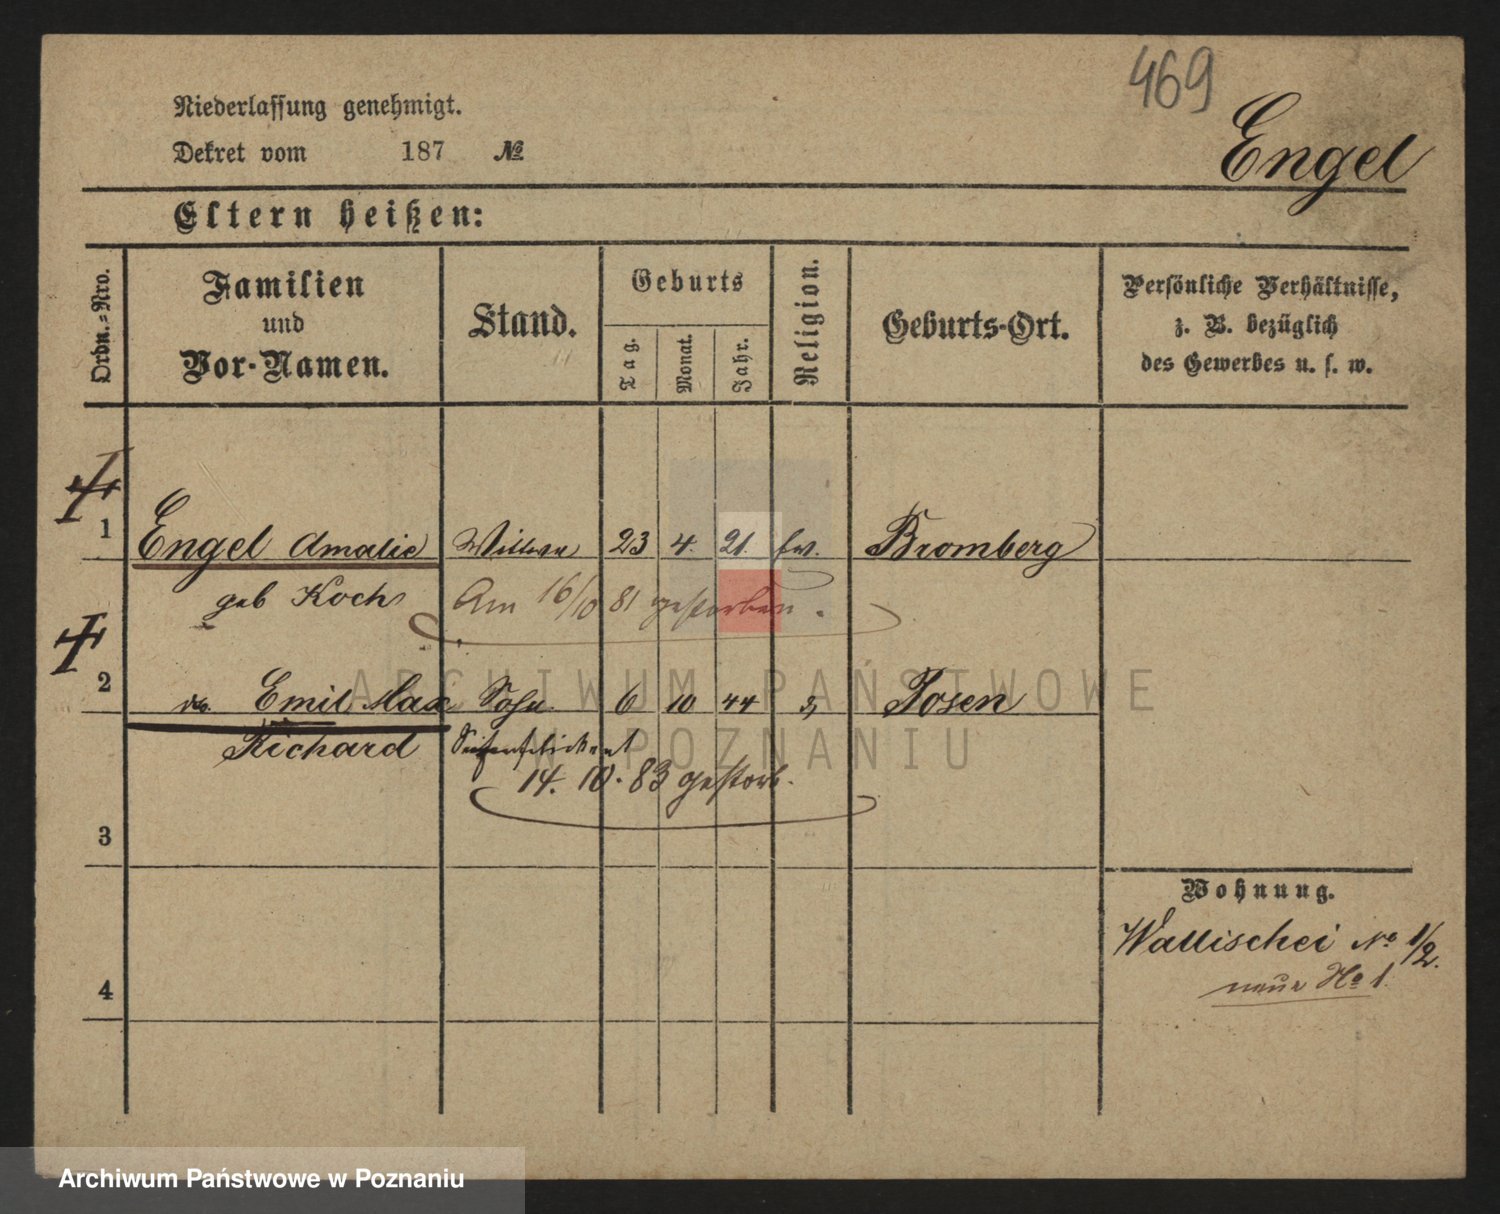 469
Engel
Niederlassung genehmigt.
Dekret vom 187 №
Eltern heißen:
Ordn.-Nro.
Familien und Vor-Namen.
Stand.
Geburts
Tag.
Monat.
Jahr.
Religion.
Geburts-Ort.
Persönliche Verhältnisse,
z. B. bezüglich
des Gewerbes u. s. w.
1 Engel Amalie Wittwe 23 4. 21. ev. Bromberg
geb Koch Am 16/10 81 gestorben.
2 do. Emil Max Sohn 6 10 44 " Posen
Richard Seifenfabrikant
14. 10. 83 gestorb.
3
4
Wohnung.
Wallischei No 1/2.
neue No 1.
ARCHIWUM PAŃSTWOWE
W POZNANIU
Archiwum Państwowe w Poznaniu